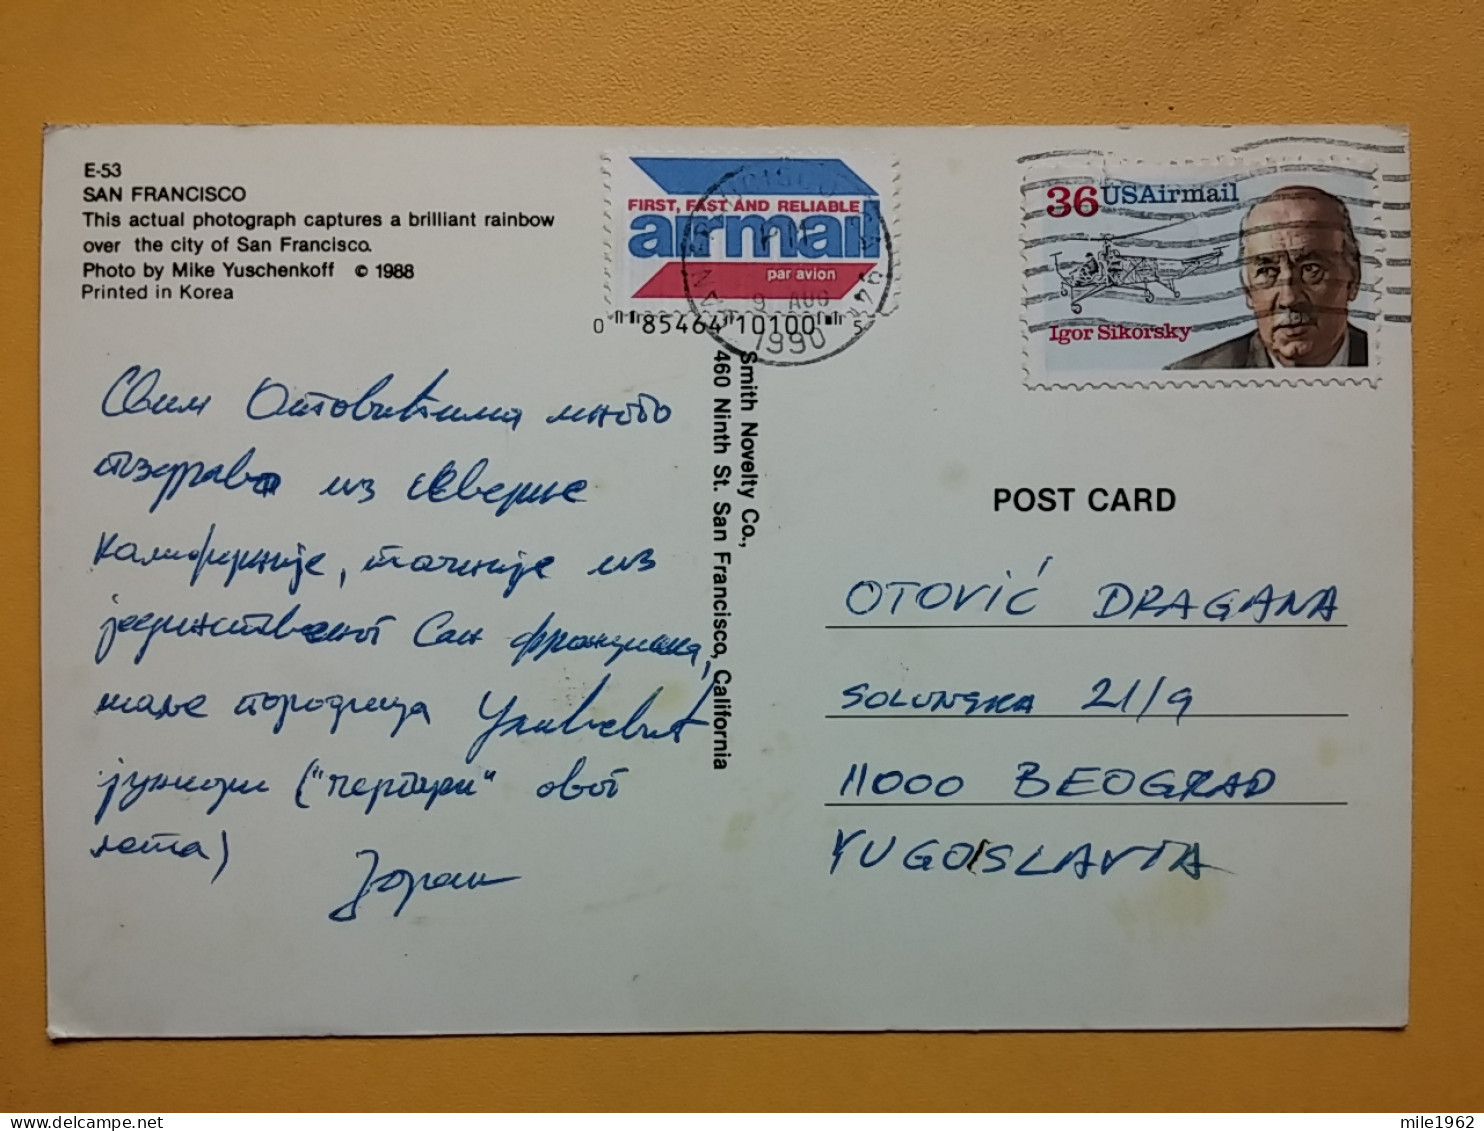 E-53
SAN FRANCISCO
This actual photograph captures a brilliant rainbow
over the city of San Francisco.
Photo by Mike Yuschenkoff © 1988
Printed in Korea
FIRST, FAST AND RELIABLE
airmail
par avion
0 85464 10100 5
9 AUG
1990
36 USAirmail
Igor Sikorsky
Свим Отовићима много
поздрава из северне
Калифорније, тачније из
јединственог Сан Франциска,
шаље породица
јуниори ("чергари" овог
лета)
Зоран
Smith Novelty Co.,
460 Ninth St. San Francisco, California
POST CARD
OTOVIĆ DRAGANA
SOLUNSKA 21/9
11000 BEOGRAD
YUGOSLAVIA
mile1962